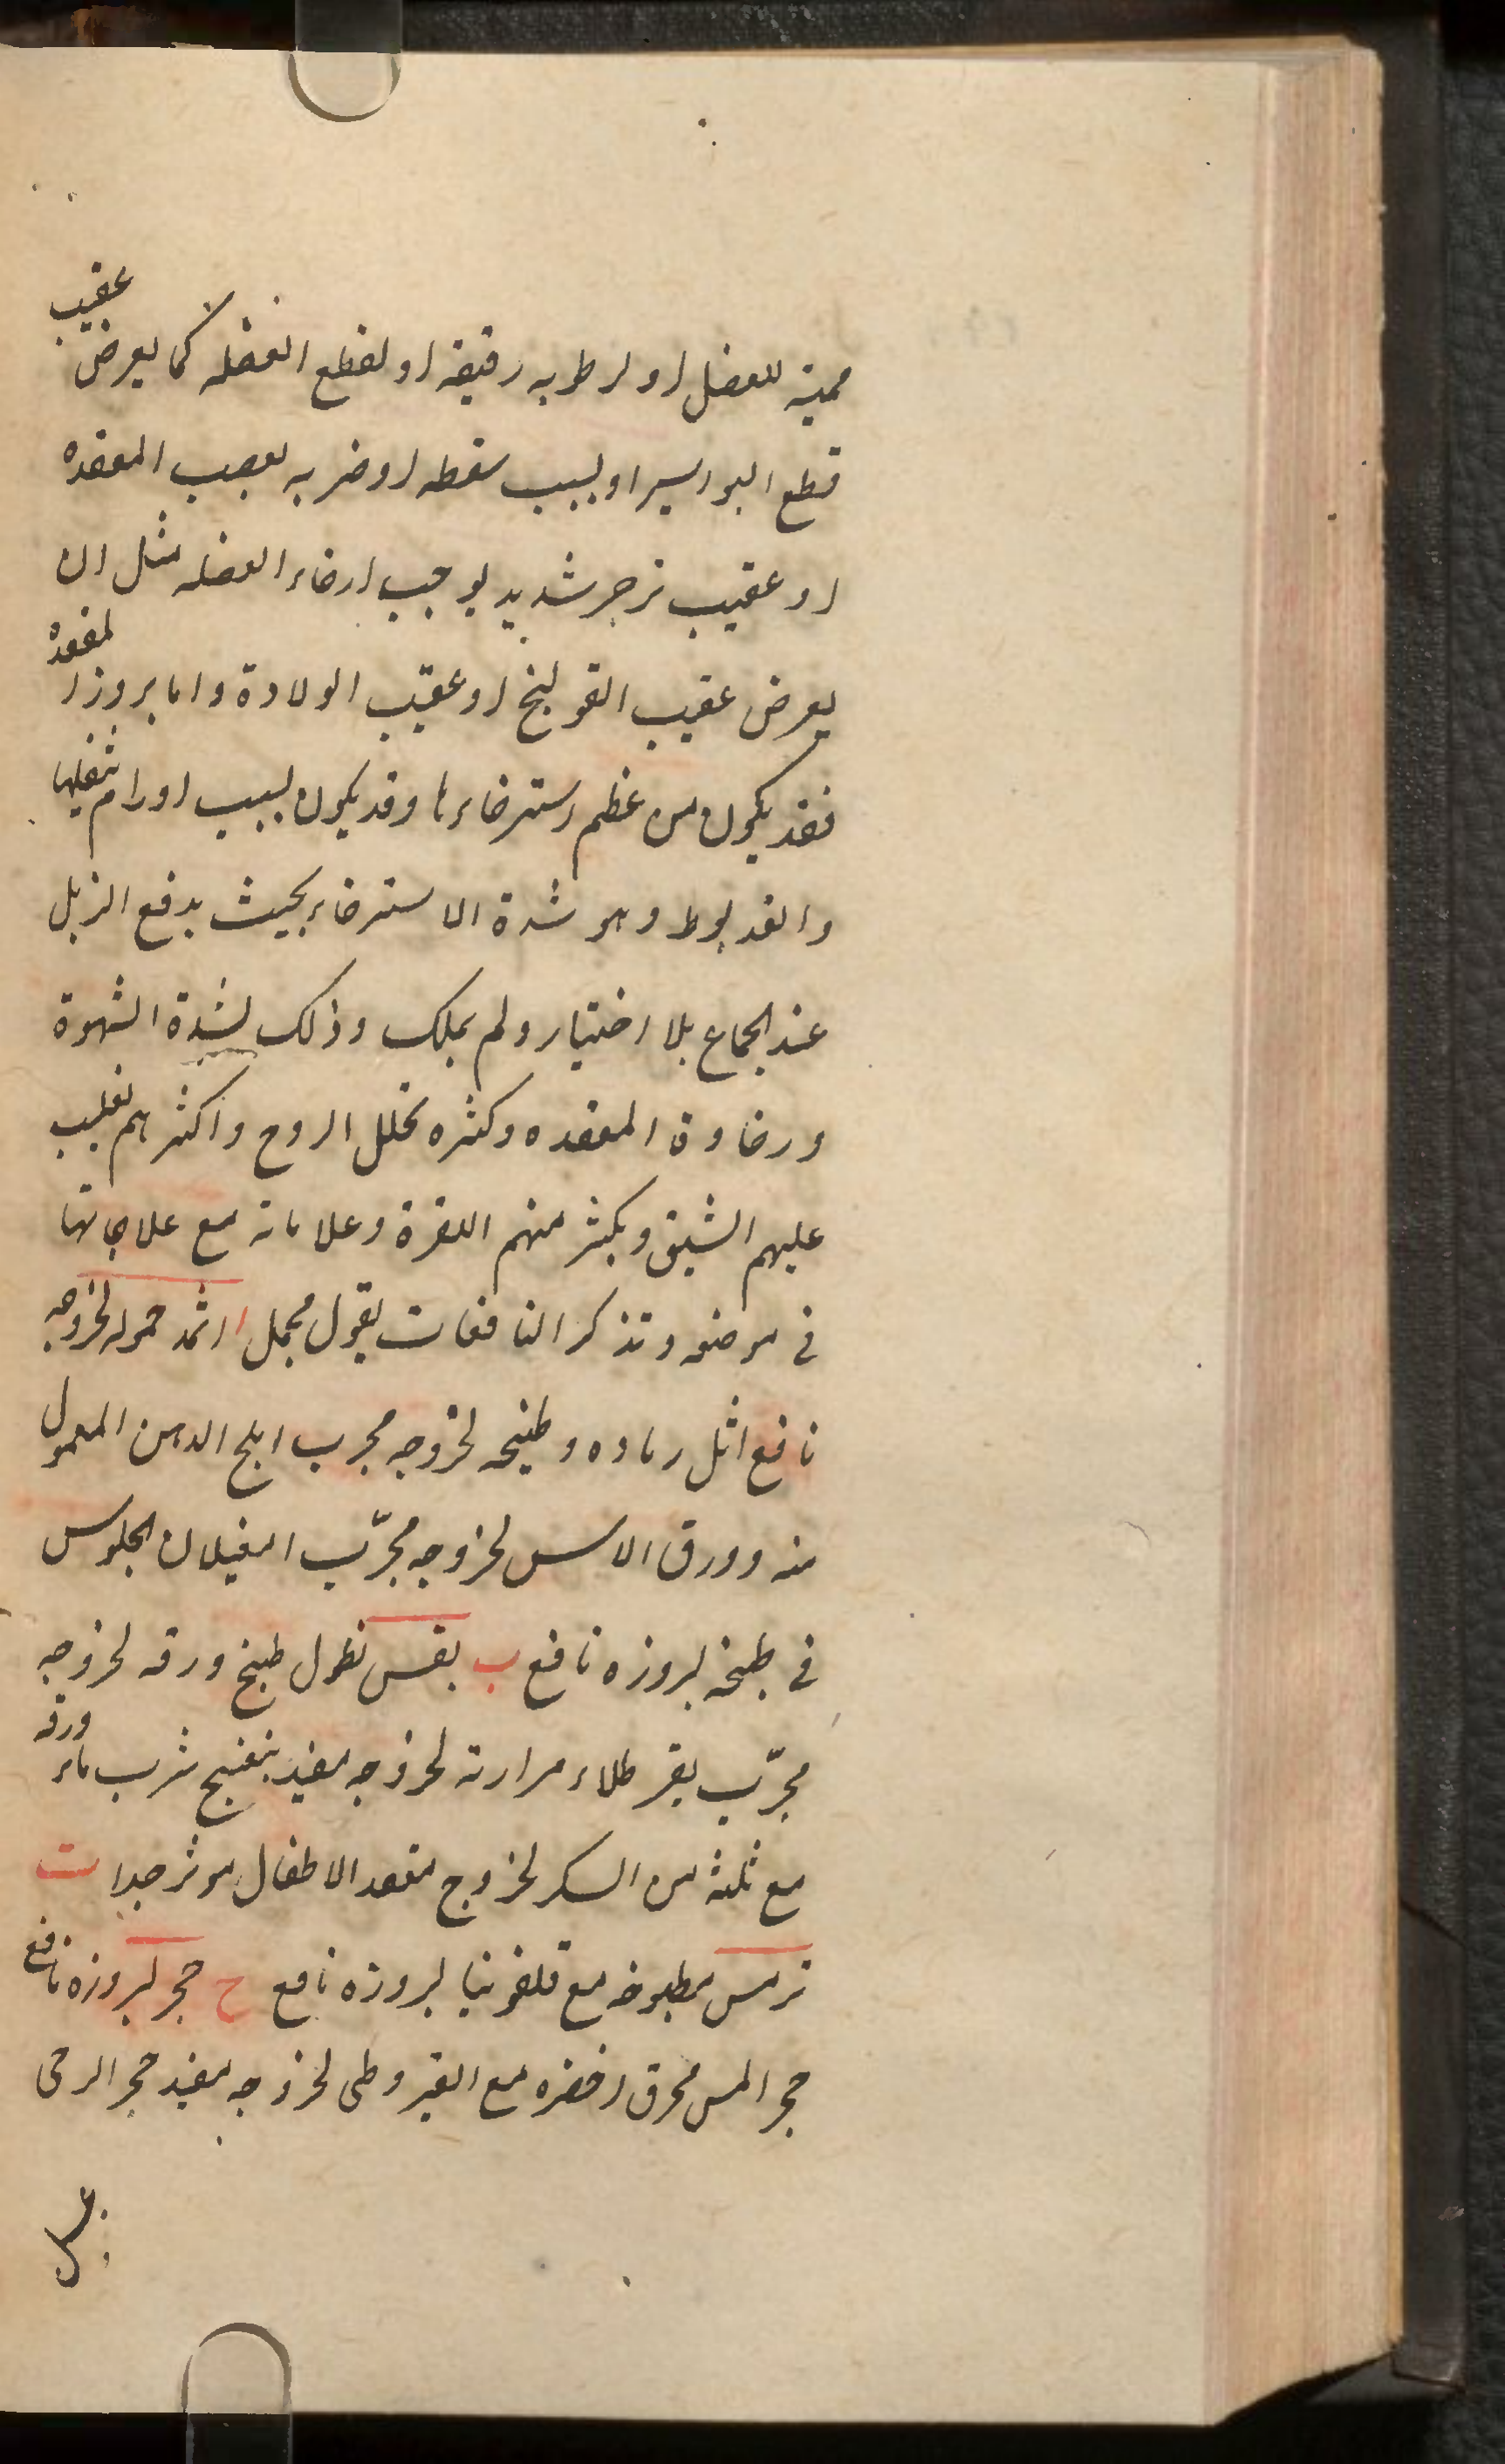 ممیة للعضل او لرطوبه رقیقة او لقطع العضله کما یعرض عقیب
قطع البواسیر او بسبب سقطه او ضربه لعصب المقعده
او عقیب تزحر شدید یوجب ارخاء العضله مثل ان
یعرض عقیب القولنج او عقیب الولادة واما بروز المقعدة
فقد یکون من عظم استرخاءها وقد یکون بسبب اورام ثقیلها
والغدیوط وهو شدة الاسترخاء بحیث یدفع الزبل
عند الجماع بلا اختیار ولم یملک وذلک لشدة الشهوة
ورخاوة المقعده وکثره تخلل الروح واکثرهم تغلب
علیهم الشبق ویکثر منهم اللقوة وعلاماته مع علاجاتها
فی موضعه ونذکر النافعات بقول مجمل ا اثمد حموله لخروجه
نافع اثل رماده وطبیخه لخروجه مجرب ابلج الدهن المعمول
منه وورق الاس لخروجه مجرّب امغیلان الجلوس
فی طبخه لبروزه نافع ب بقس نطول طبیخ ورقه لخروجه
مجرّب بقر طلاء مرارته لخروجه مفید بنفسج شرب ماء ورقه
مع ثلثه من السکر لخروج مقعد الاطفال موثر جدا ت
ترمس مطبوخه مع قلفونیا لبروزه نافع ح حجر لبروزه نافع
حجر المس محرق اخضره مع القیروطی لخروجه مفید حجر الرحی